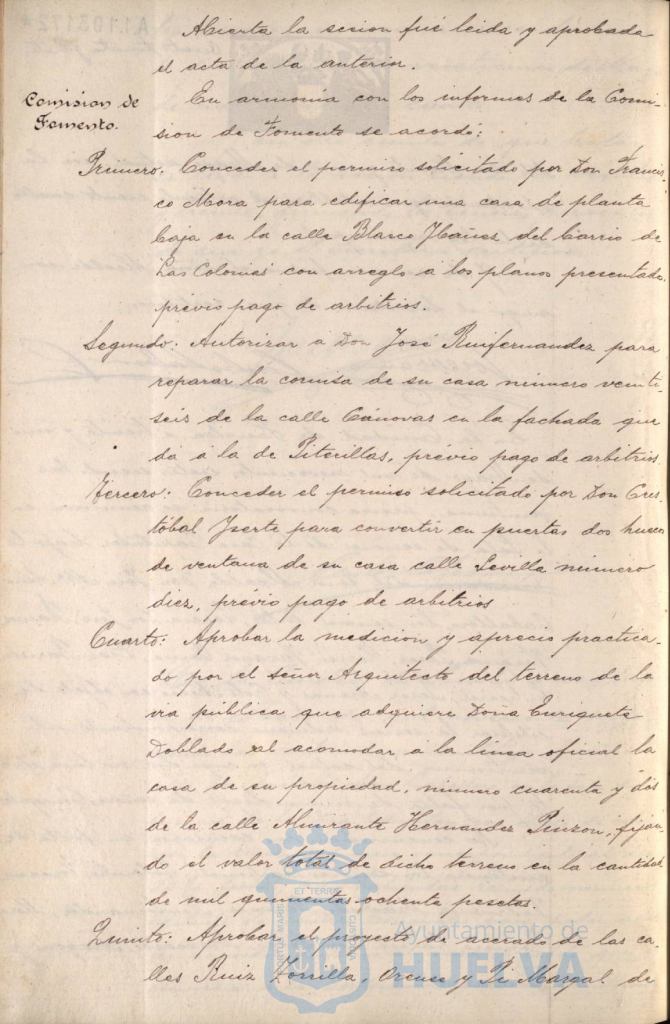 Abierta la sesion fué leida y aprobada
el acta de la anterior.
Comision de
Fomento.
En armonía con los informes de la Comi-
sion de Fomento se acordó:
Primero: Conceder el permiso solicitado por Don Francis-
co Mora para edificar una casa de planta
baja en la calle Blasco Ybañez del barrio de
Las Colonias con arreglo á los planos presentados,
prévio pago de arbitrios.
Segundo: Autorizar á Don José Ruifernandez para
reparar la cornisa de su casa número veinti-
seis de la calle Cánovas en la fachada que
dá á la de Piterillas, prévio pago de arbitrios.
Tercero: Conceder el permiso solicitado por Don Cris-
tóbal Yserte para convertir en puertas dos huecos
de ventana de su casa calle Sevilla número
diez, prévio pago de arbitrios
Cuarto: Aprobar la medicion y aprecio practica-
do por el señor Arquitecto del terreno de la
via pública que adquiere Doña Enriqueta
Doblado al acomodar á la línea oficial la
casa de su propiedad, número cuarenta y dós
de la calle Almirante Hernandez Pinzon, fijan-
do el valor total de dicho terreno en la cantidad
de mil quinientas ochenta pesetas.
Quinto: Aprobar el proyecto de acerado de las ca-
lles Ruiz Zorrilla, Orense y Pi Margal de
Ayuntamiento de
HUELVA